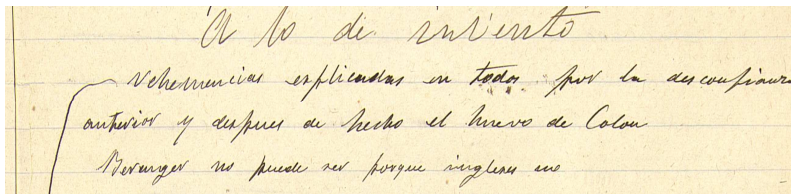 A lo de invento
Vehemencias esplicadas en todos por la desconfianza
anterior y despues de hecho el huevo de Colon
Beranger no puede ser porque ingleses no